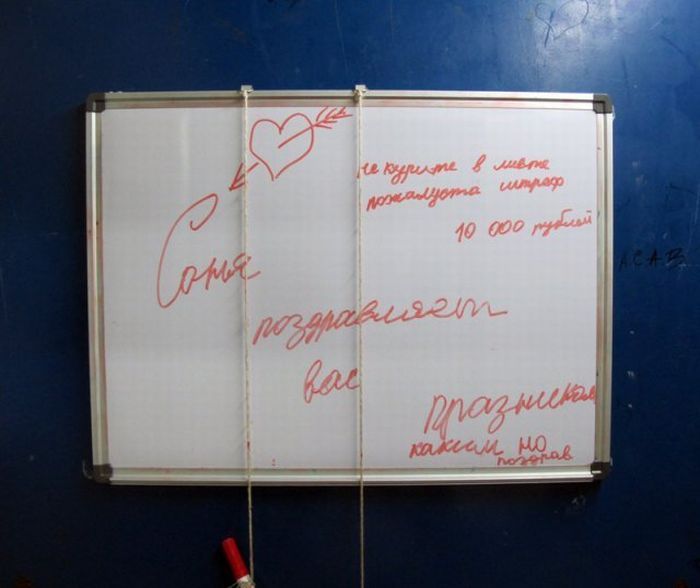 не курите в лифте
пожалуста штраф
10 000 рублей
ACAB
Соня
поздравляет
вас
празником
каким но
поздрав